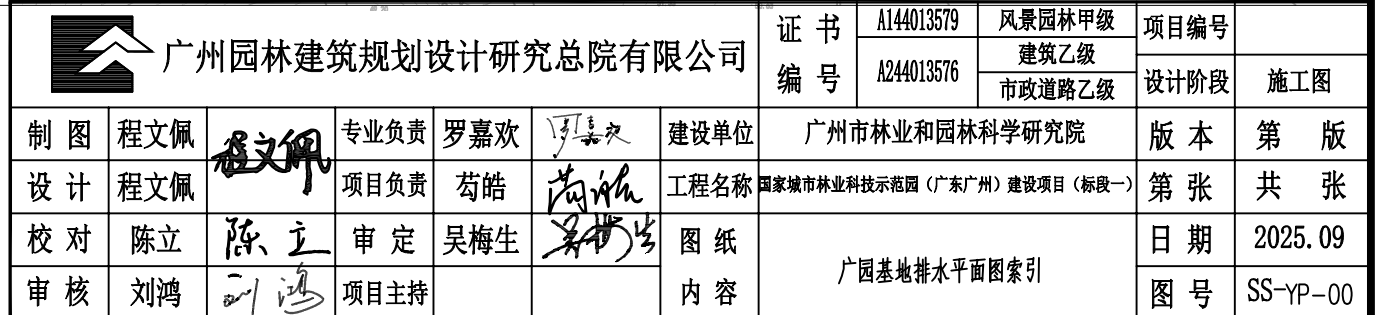 广州园林建筑规划设计研究总院有限公司
证书编号
A144013579 风景园林甲级
A244013576 建筑乙级
市政道路乙级
项目编号
设计阶段 施工图
制图 程文佩 程文佩 专业负责 罗嘉欢 罗嘉欢 建设单位 广州市林业和园林科学研究院 版本 第 版
设计 程文佩 项目负责 苟皓 工程名称 国家城市林业科技示范园（广东广州）建设项目（标段一） 第张 共 张
校对 陈立 陈立 审定 吴梅生 吴梅生 图纸内容 广园基地排水平面图索引 日期 2025.09
审核 刘鸿 刘鸿 项目主持 图号 SS-YP-00